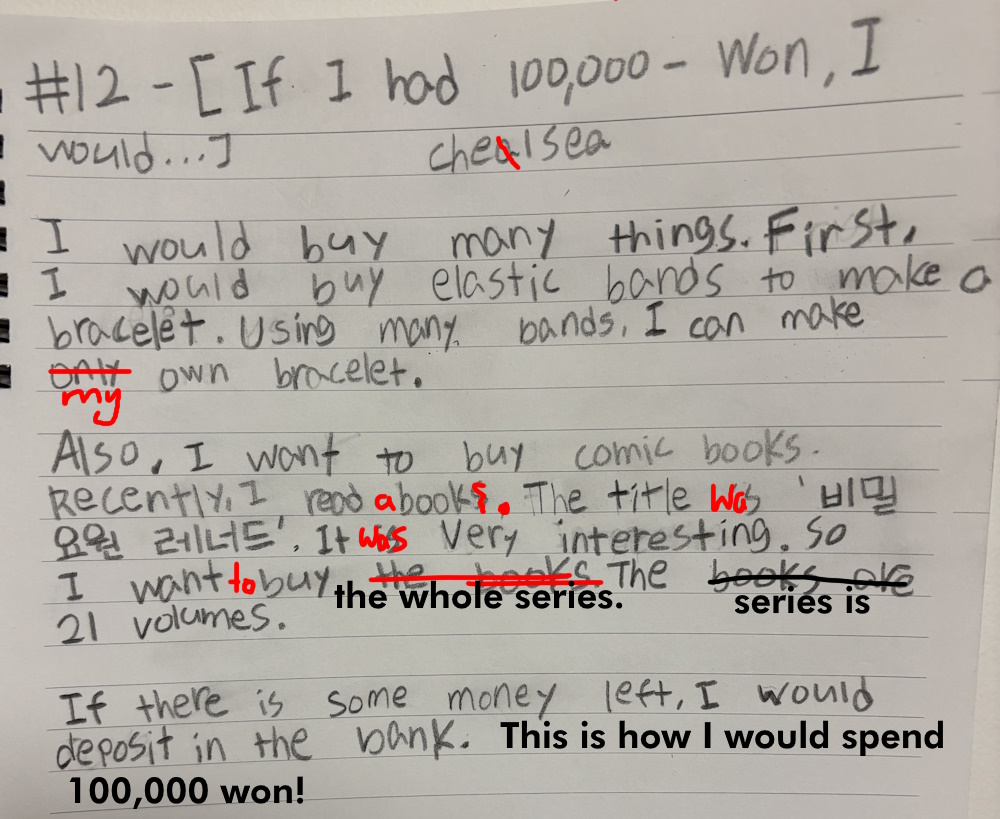 #12 - [If I had 100,000- Won, I
would...] chealsea
I would buy many things. First,
I would buy elastic bands to make a
bracelet. Using many bands, I can make
only own bracelet.
my
Also, I want to buy comic books.
Recently, I read a books. The title was '비밀
요원 레너드'. It was very interesting. So
I want to buy the books The books are
the whole series. series is
21 volumes.
If there is some money left, I would
deposit in the bank. This is how I would spend
100,000 won!